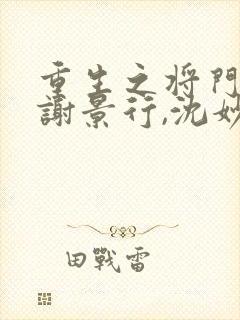 重生之将門
謝景行,沈妙
田戰雷